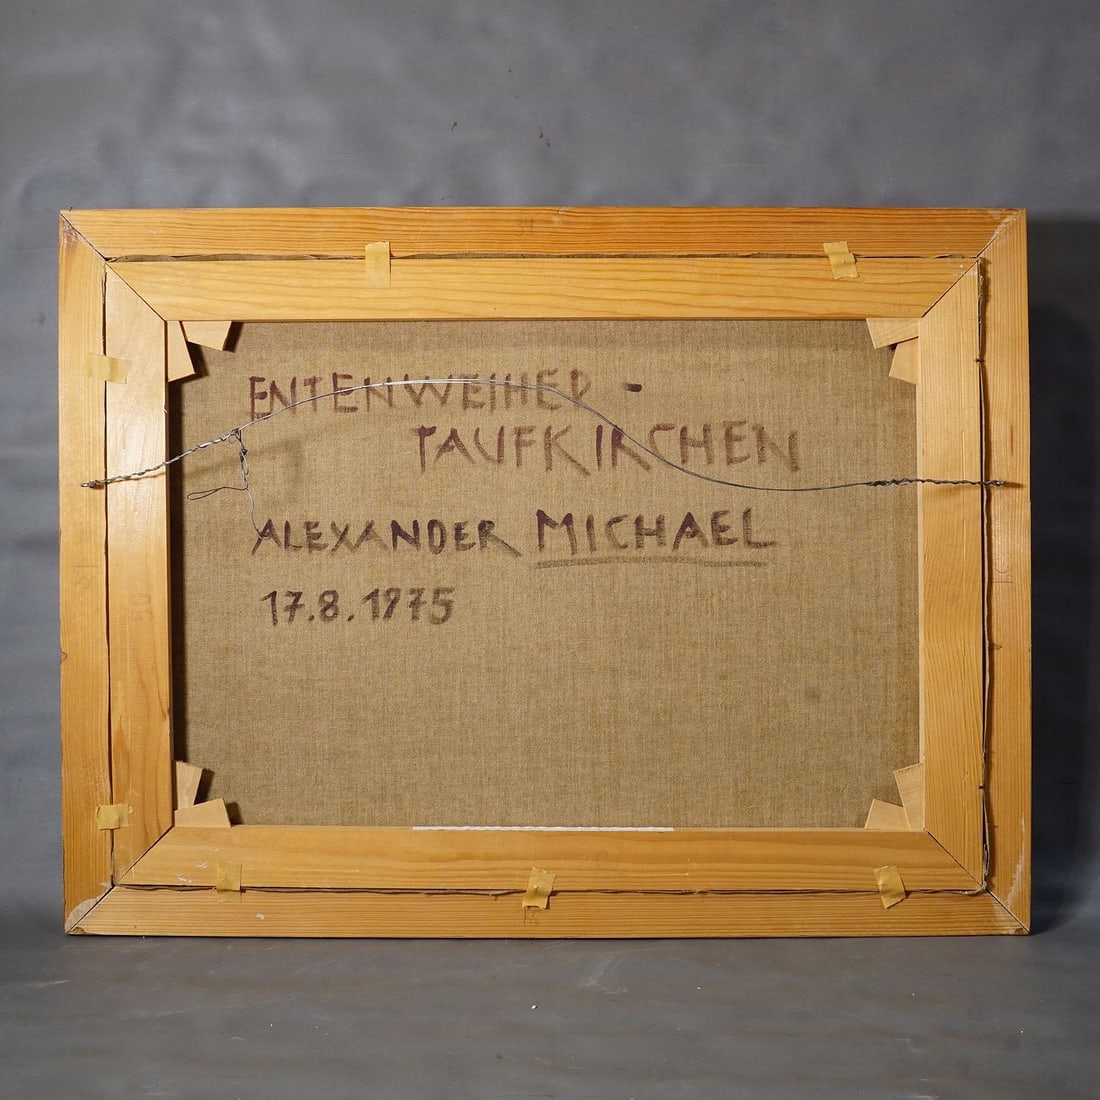 ENTENWEIHER -
TAUFKIRCHEN
ALEXANDER MICHAEL
17.8.1975